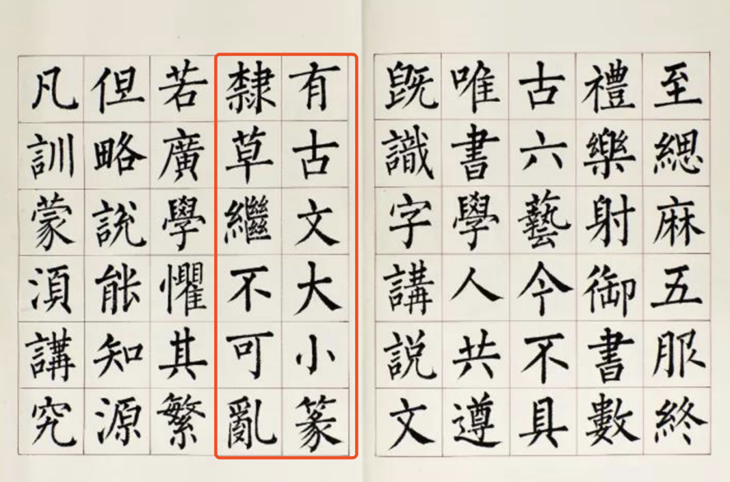 至緦麻五服終
禮樂射御書數
古六藝今不具
唯書學人共遵
既識字講説文
有古文大小篆
隸草繼不可亂
若廣學懼其繁
但略説能知源
凡訓蒙須講究